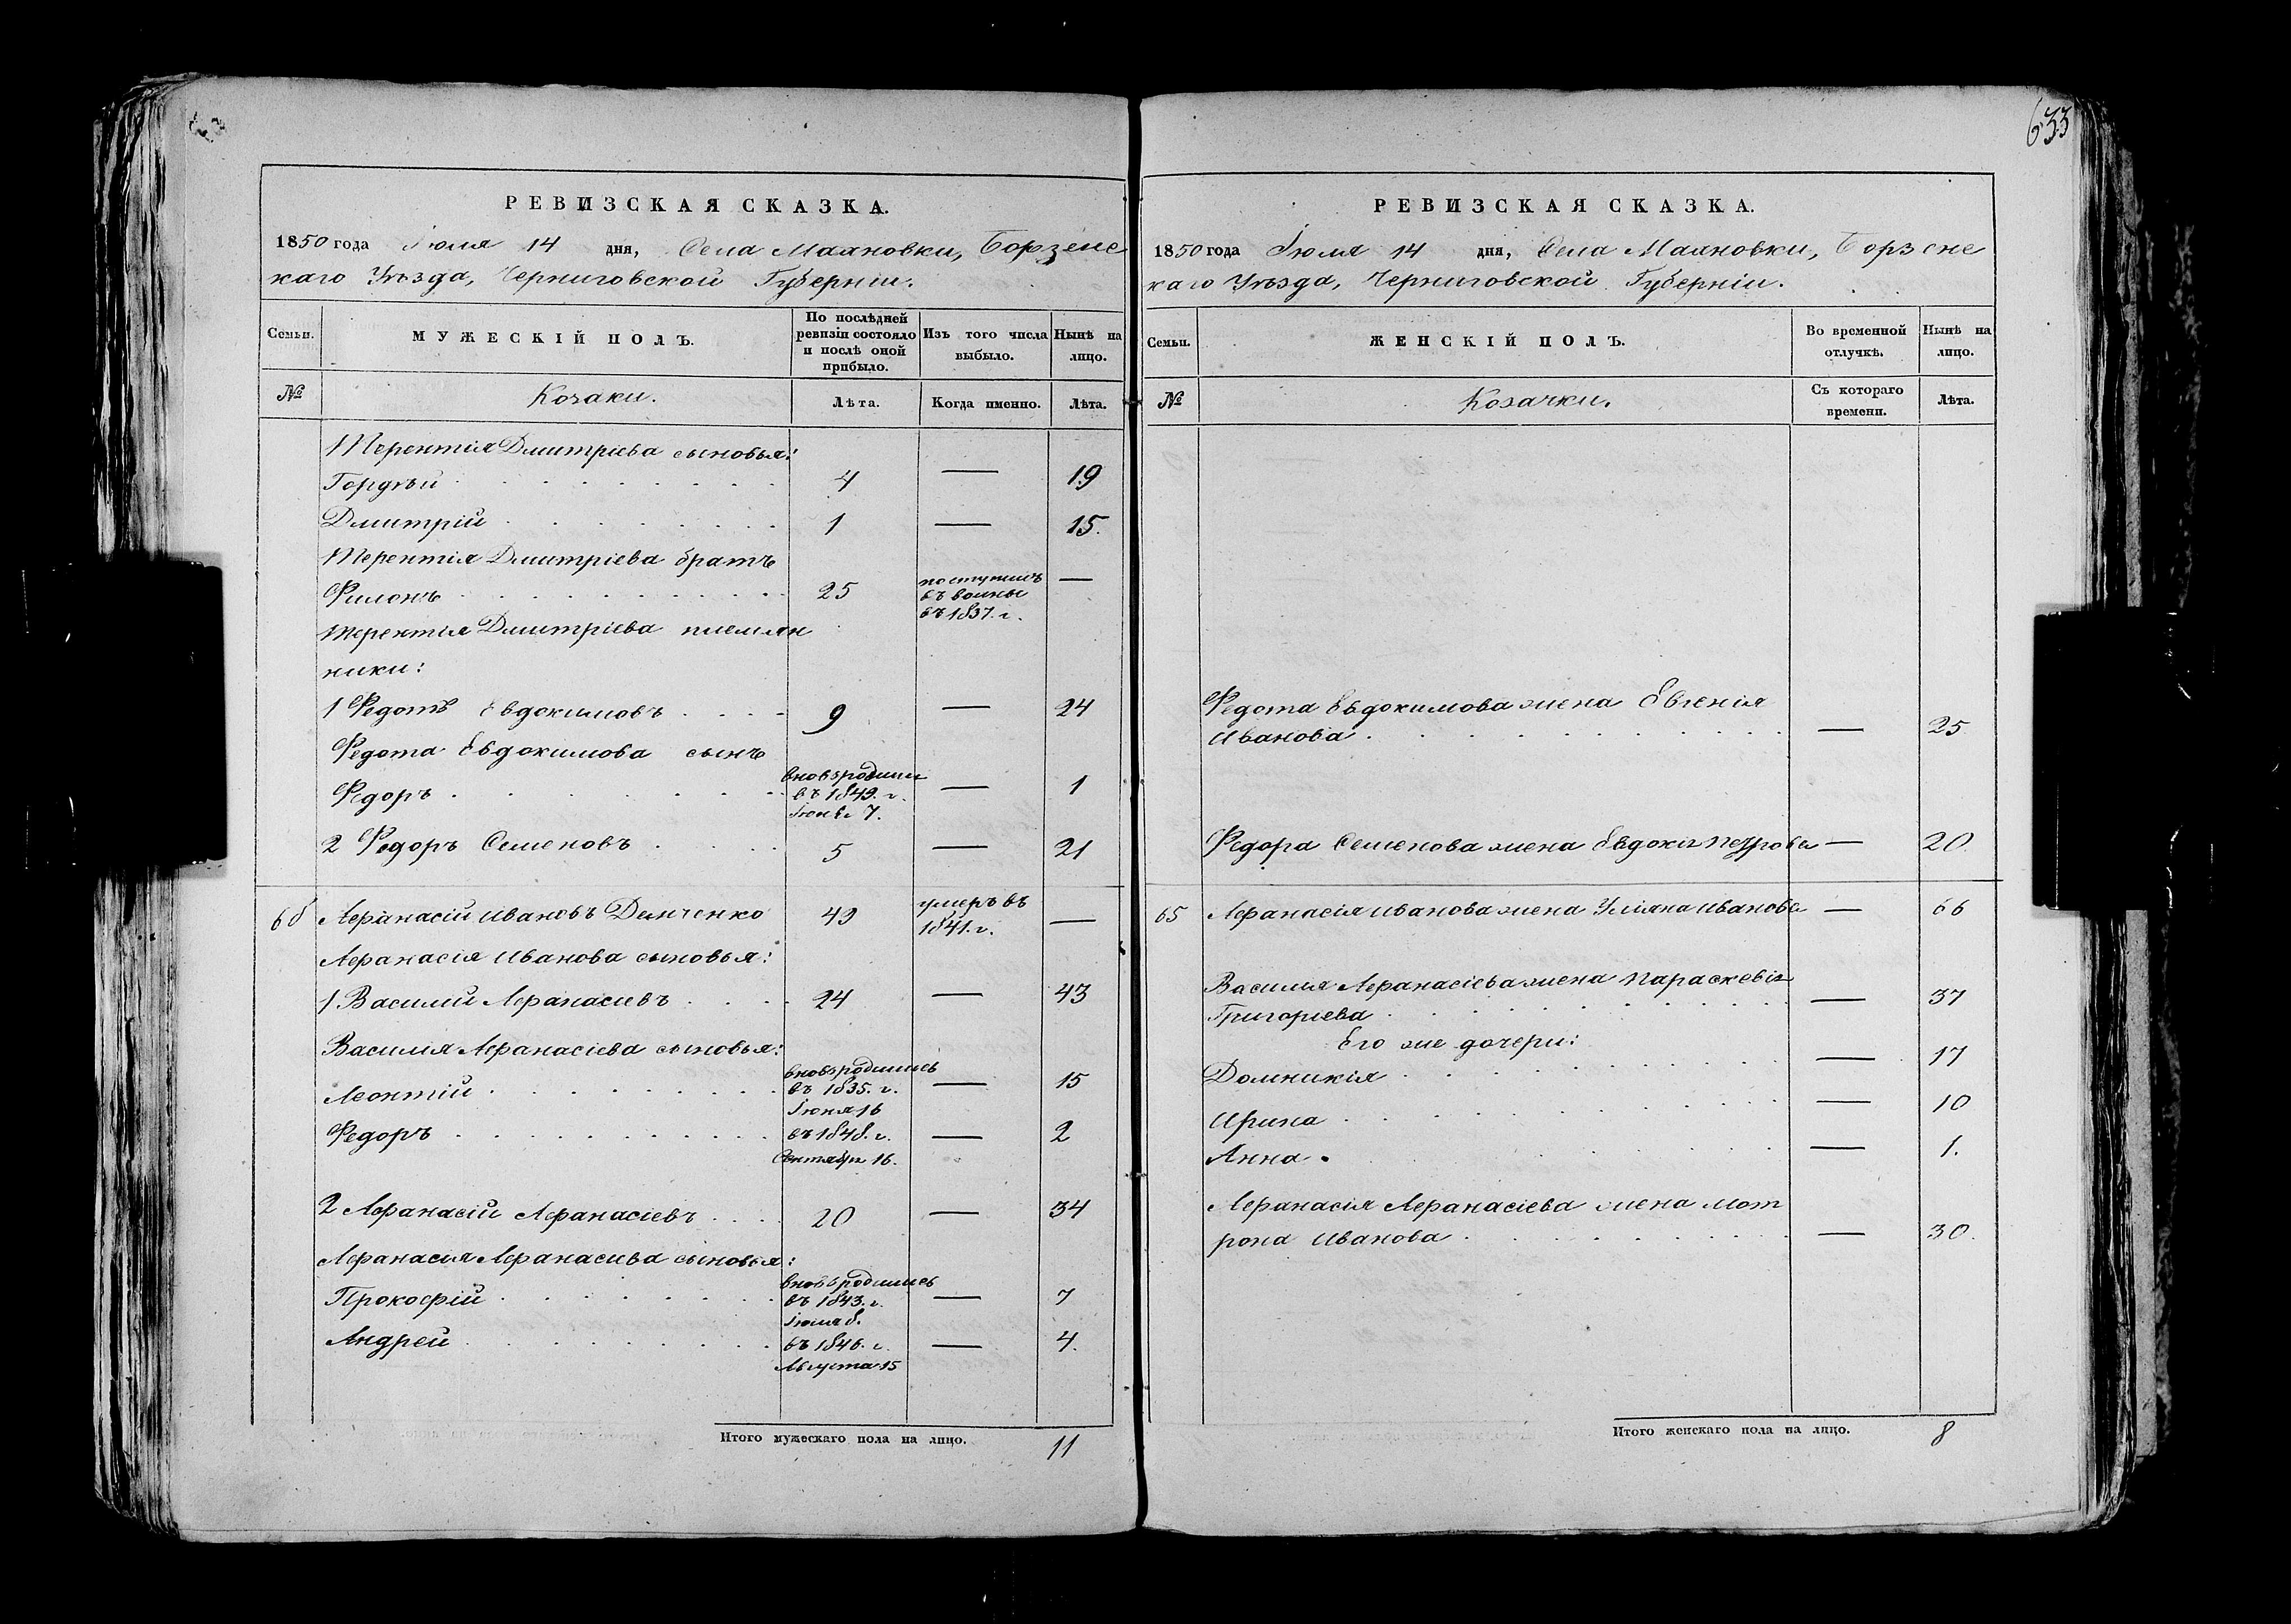 633
РЕВИЗСКАЯ СКАЗКА.
1850 года Іюля 14 дня, Села Маяновки, Борзенс
каго Уѣзда, Черниговской Губерніи.
Семьи.
МУЖЕСКІЙ ПОЛЪ.
По послѣдней ревизіи состояло и послѣ оной прибыло.
Изъ того числа выбыло.
Нынѣ на лицо.
№ Козаки. Лѣта. Когда именно. Лѣта.
Терентія Дмитріева сыновья:
Гордѣй 4 — 19
Дмитрій 1 — 15.
Терентія Дмитріева братъ
Филонъ 25 поступилъ —
въ 1837. г.
Терентія Дмитріева племян
ники:
1 Федотъ Евдокимовъ 9 — 24
Федота Евдокимова сынъ
Федоръ вновь родился въ 1849. г. 7. — 1
2 Федоръ Семеновъ 5 — 21
65 Афанасій Ивановъ Демченко 49 умеръ въ 1841. г. —
Афанасія Иванова сыновья:
1 Василій Афанасіевъ 24 — 43
Василія Афанасіева сыновья:
Леонтій вновь родились въ 1835. г. Іюня 16 — 15
Федоръ въ 1848. г. Сентября 16. — 2
2 Афанасій Афанасіевъ 20 — 34
Афанасія Афанасіева сыновья:
Прокофій вновь родились въ 1843. г. Іюля 8. — 7
Андрей въ 1846. г. Августа 15 — 4.
Итого мужескаго пола на лицо. 11
РЕВИЗСКАЯ СКАЗКА.
1850 года Іюля 14 дня, Села Маяновки, Борзенс
каго Уѣзда, Черниговской Губерніи.
Семьи.
ЖЕНСКІЙ ПОЛЪ.
Во временной отлучкѣ.
Нынѣ на лицо.
№ Козачки. Съ котораго времени. Лѣта.
Федота Евдокимова жена Евгенія
Иванова — 25
Федора Семенова жена Евдокія Петрова — 20
65 Афанасія Иванова жена Уліяна Иванова — 66
Василія Афанасіева жена Параскевія
Григорьева — 37
Его же дочери:
Домникія — 17
Ирина — 10
Анна — 1.
Афанасія Афанасіева жена Мот
рона Иванова — 30.
Итого женскаго пола на лицо. 8